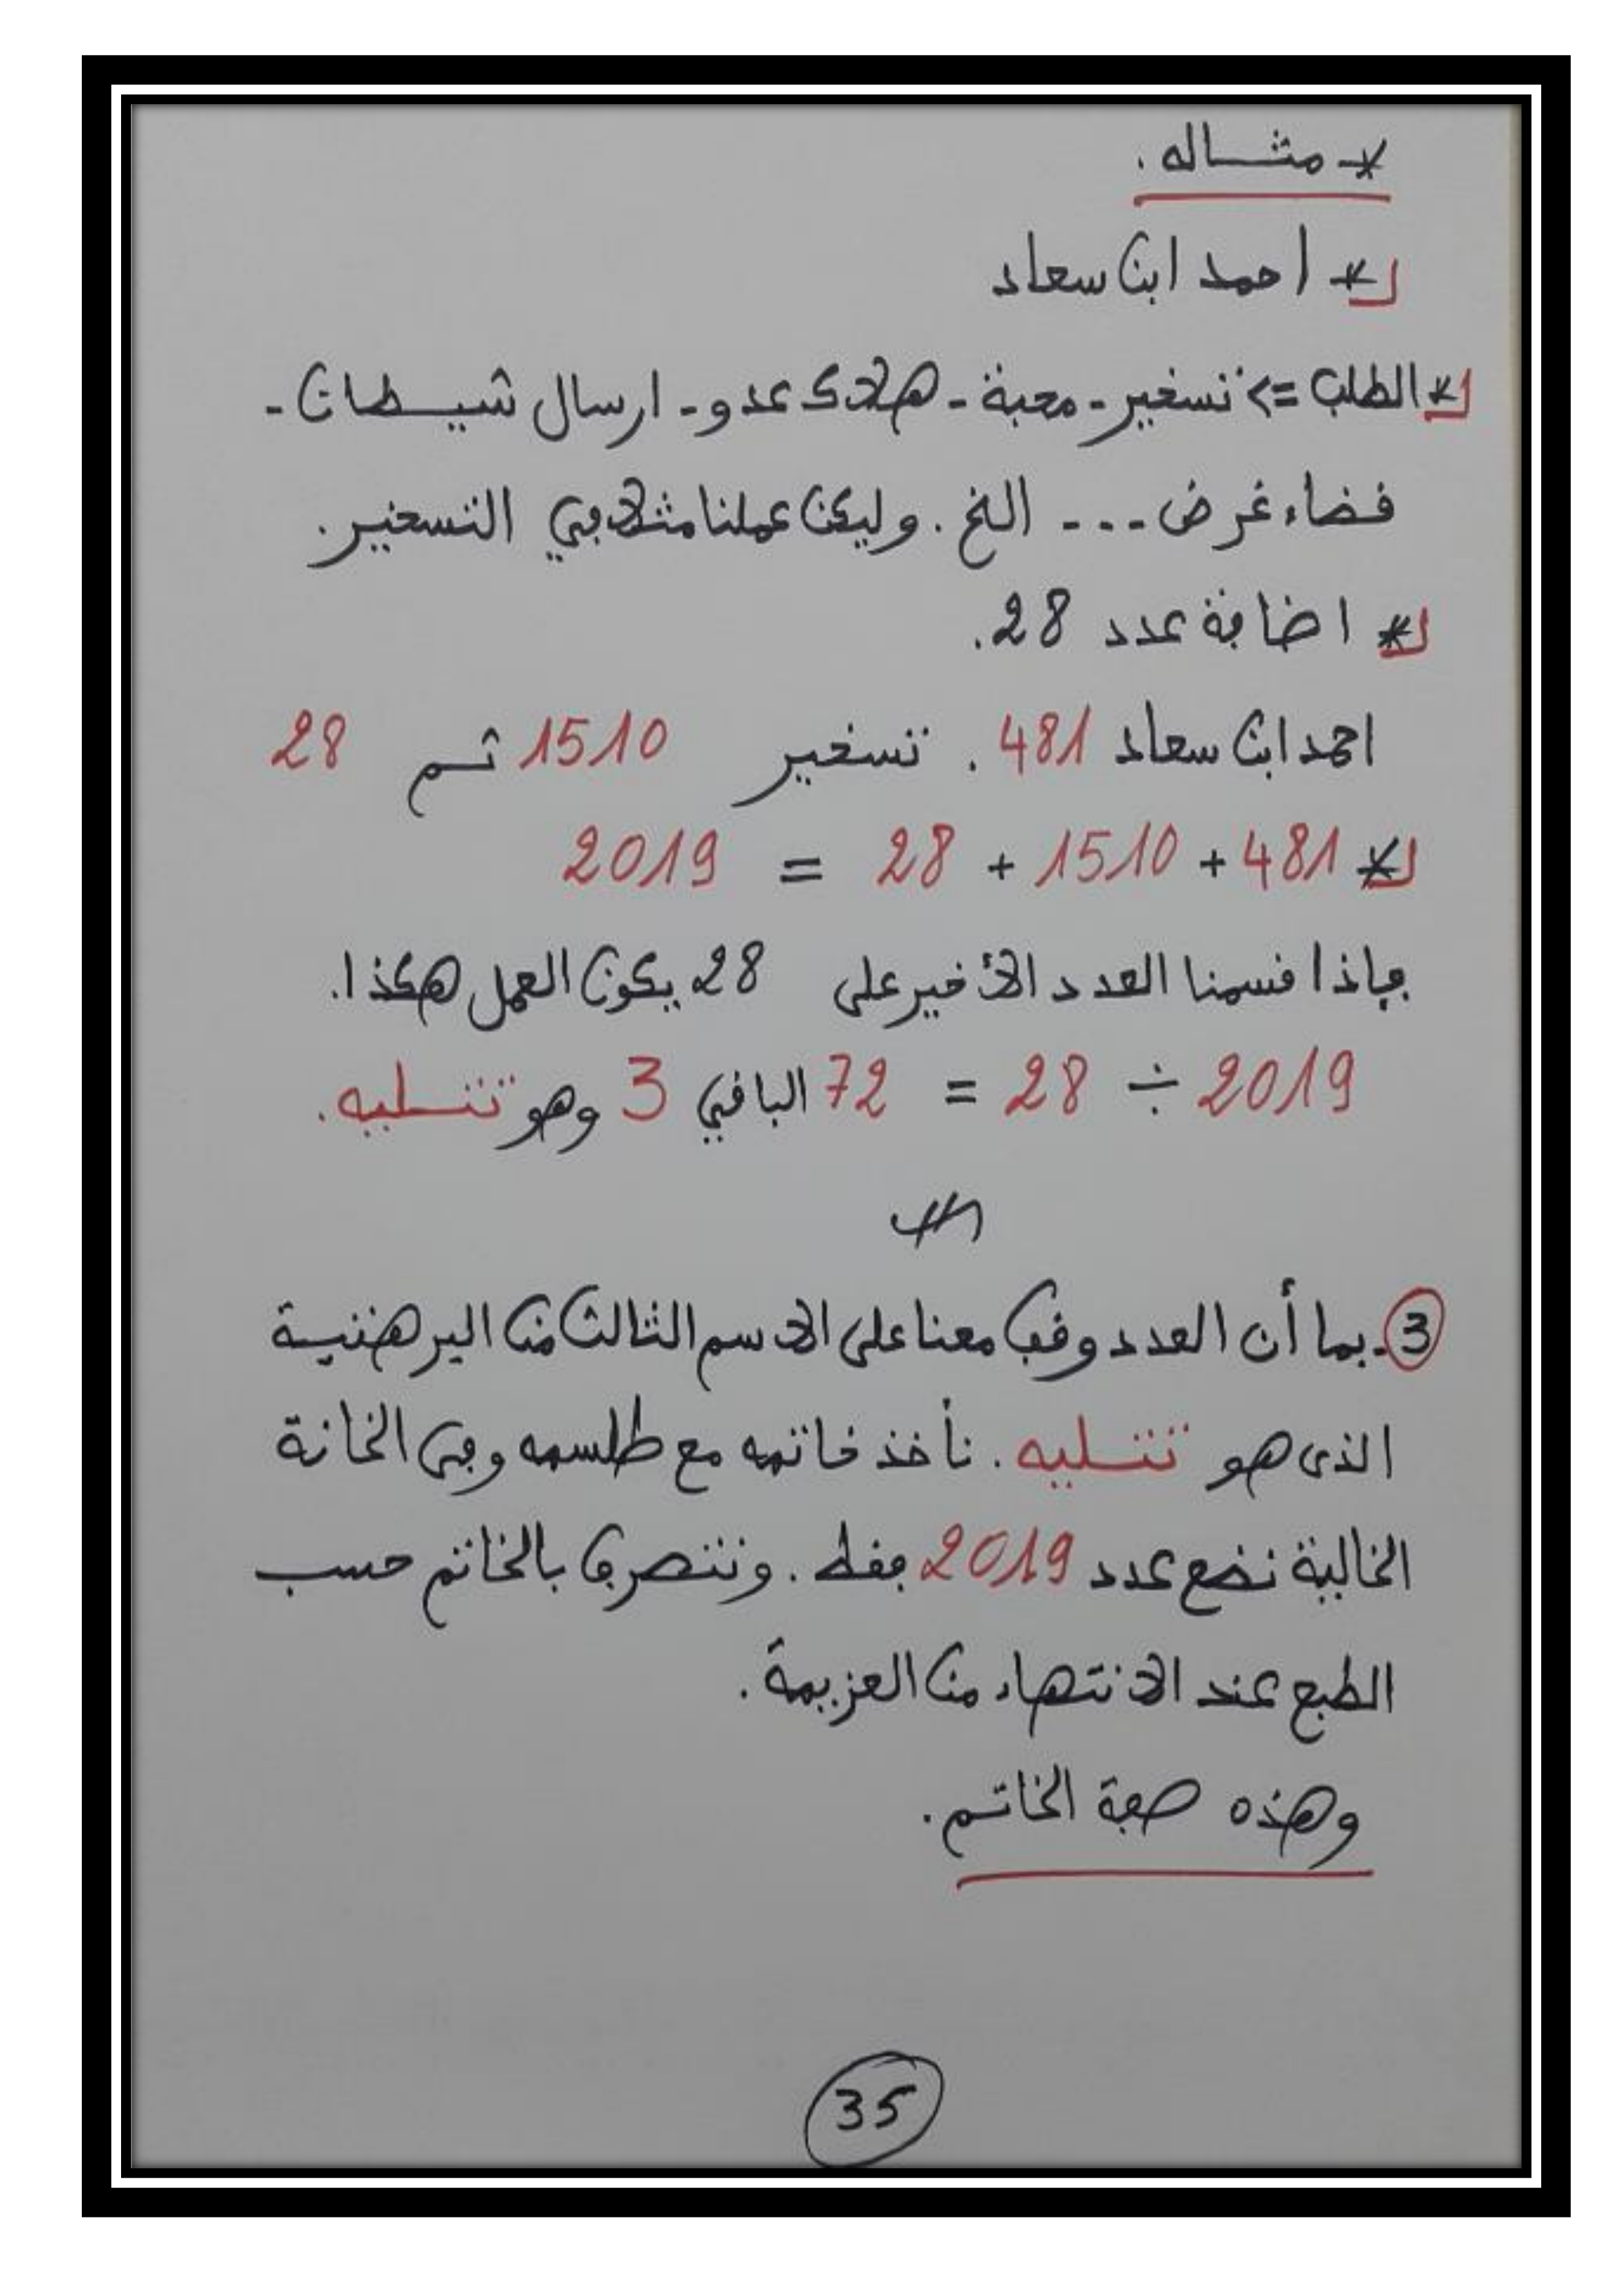 * مثاله .
* احمد ابن سعاد
* الطلب => تسخير - محبة - هلاك عدو - ارسال شيطان -
قضاء غرض --- الخ . وليكن عملنا مثلا في التسخير .
* اضافة عدد 28 .
احمد ابن سعاد 481 . تسخير 1510 ثم 28
* 481 + 1510 + 28 = 2019
فإذا قسمنا العدد الأخير على 28 يكون العمل هكذا .
2019 ÷ 28 = 72 الباقي 3 وهو تتليه .
3 - بما أن العدد وقف معنا على الاسم الثالث من البرهتية
الذى هو تتليه . نأخذ خاتمه مع طلسمه وفى الخانة
الخالية نضع عدد 2019 فقط . ونتصرف بالخاتم حسب
الطبع عند الانتهاء من العزيمة .
وهذه صفة الخاتم .
35